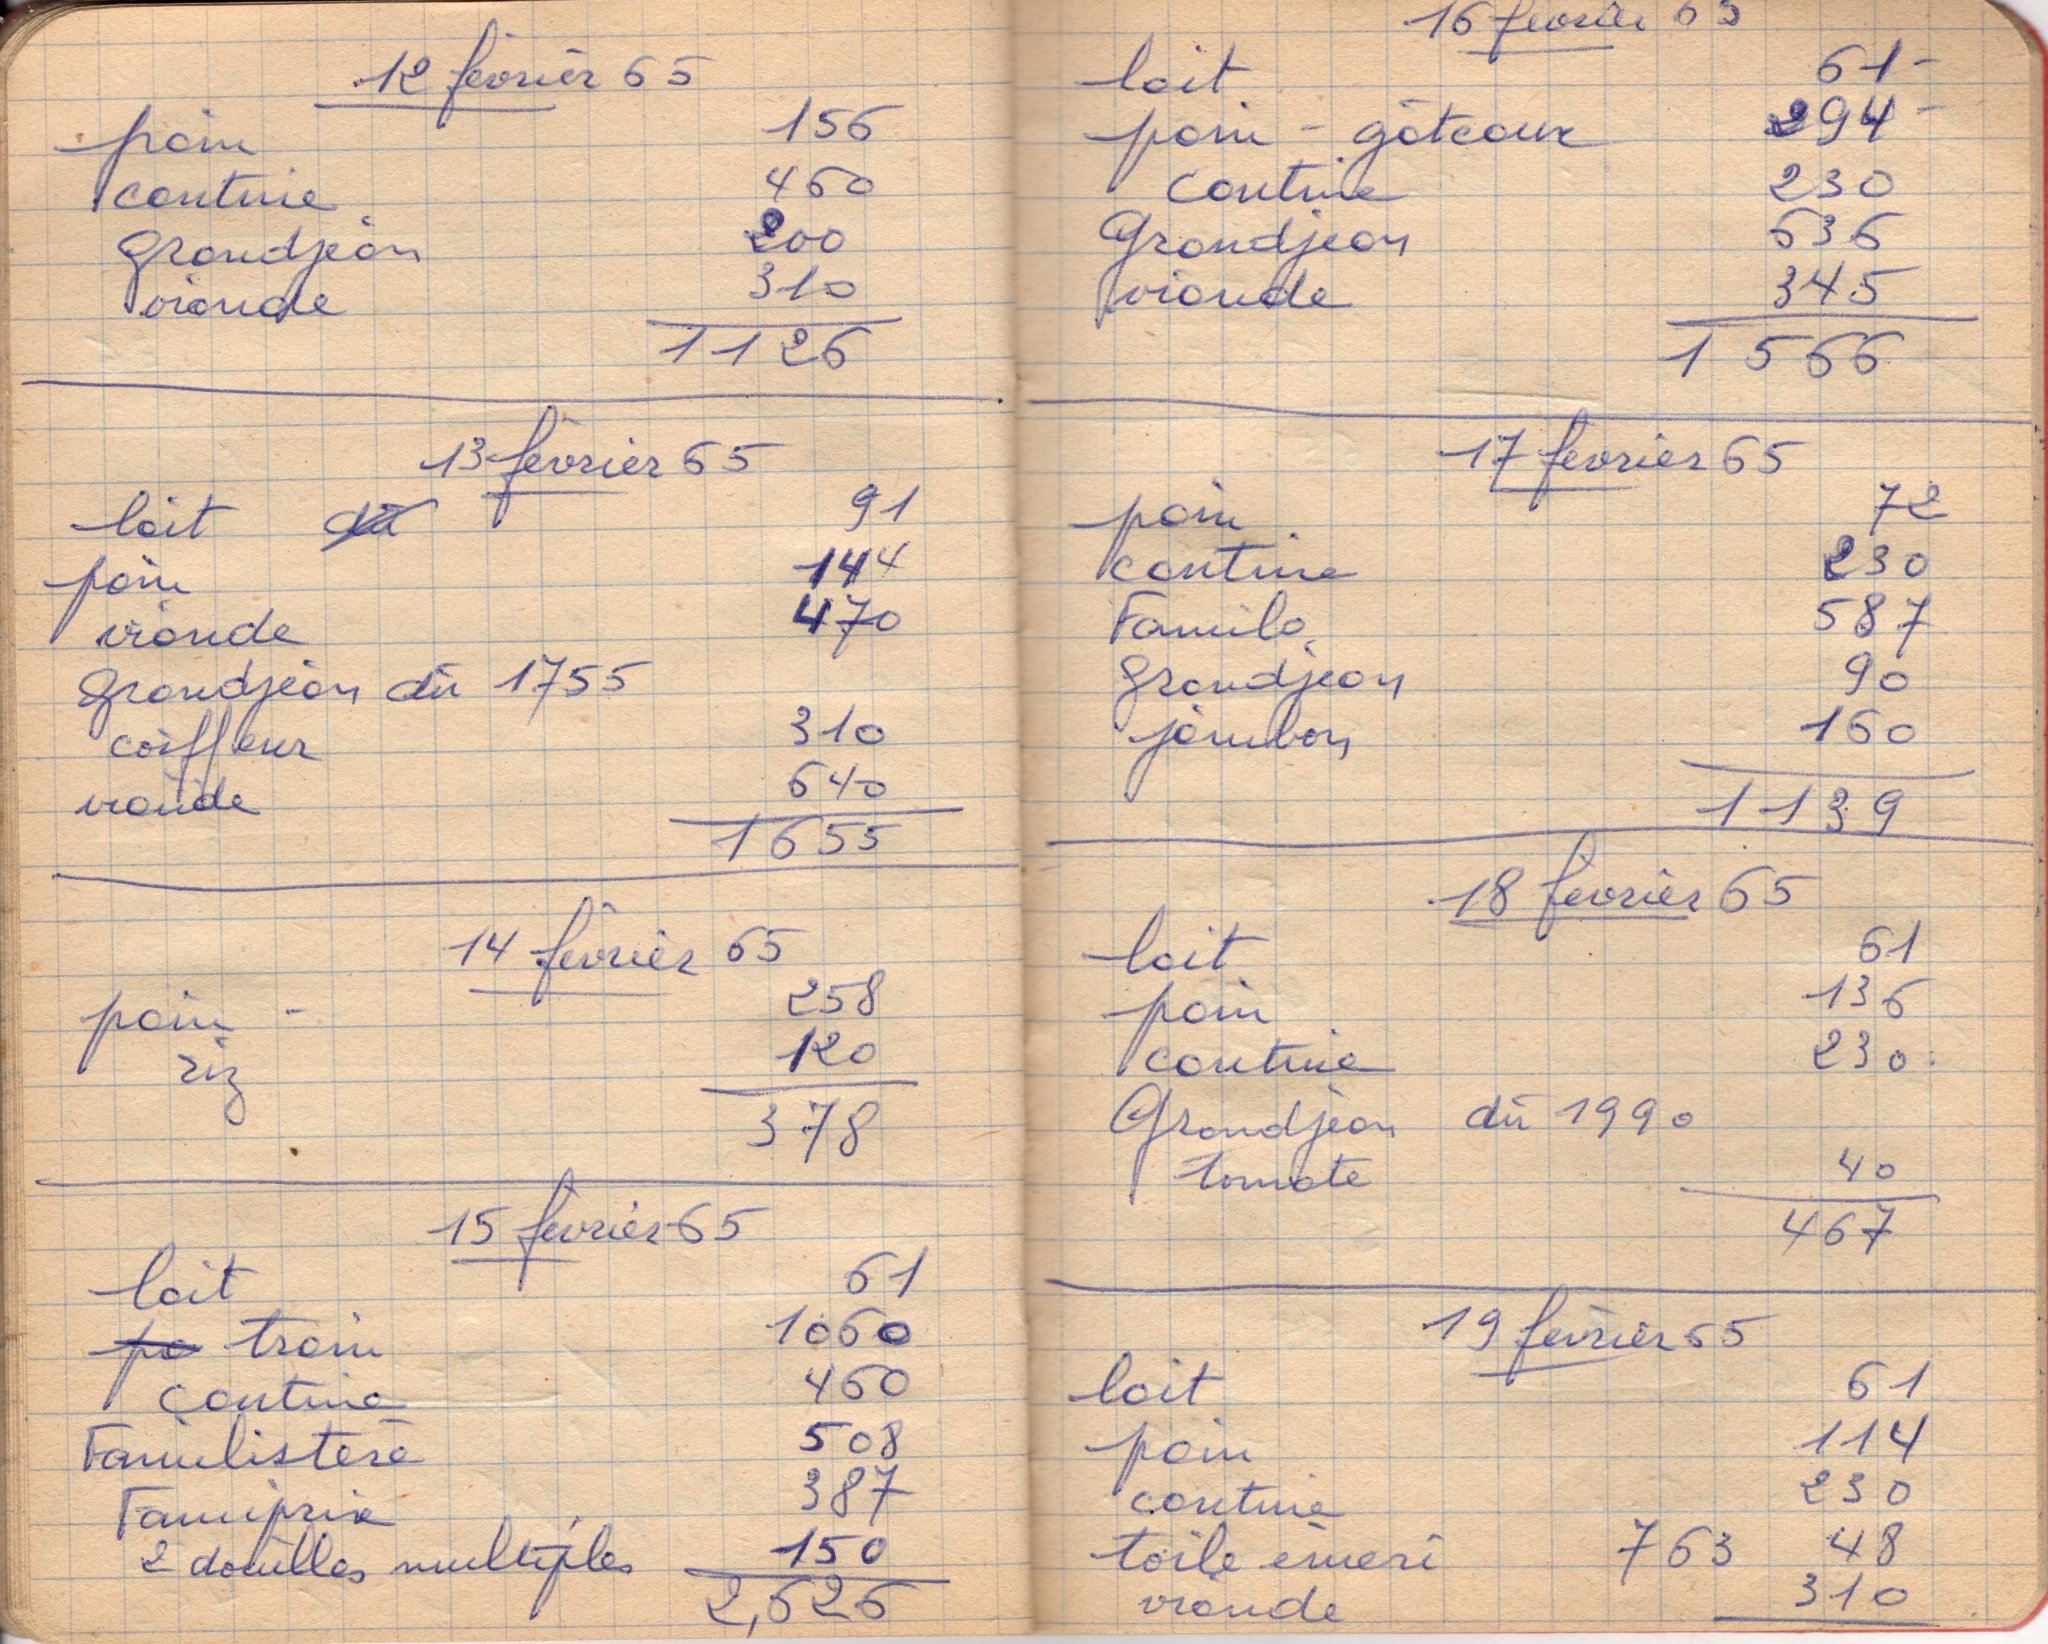 12 février 65
pain 156
cantine 460
grandjean 200
viande 310
1126
13 février 65
lait dû 91
pain 144
viande 470
grandjean dû 1755
coiffeur 310
viande 640
1655
14 février 65
pain - 258
riz 120
378
15 février 65
lait 61
pa train 1060
cantine 460
Familistère 508
Familprix 387
2 douilles multiples 150
2,626
16 février 65
lait 61-
pain - gâteaux 294-
cantine 230
Grandjean 636
viande 345
1566
17 février 65
pain 72
cantine 230
Famila 587
grandjean 90
jambon 160
1139
18 février 65
lait 61
pain 136
cantine 230
Grandjean dû 1990
tomate 40
467
19 février 65
lait 61
pain 114
cantine 230
toile émeri 763 48
viande 310